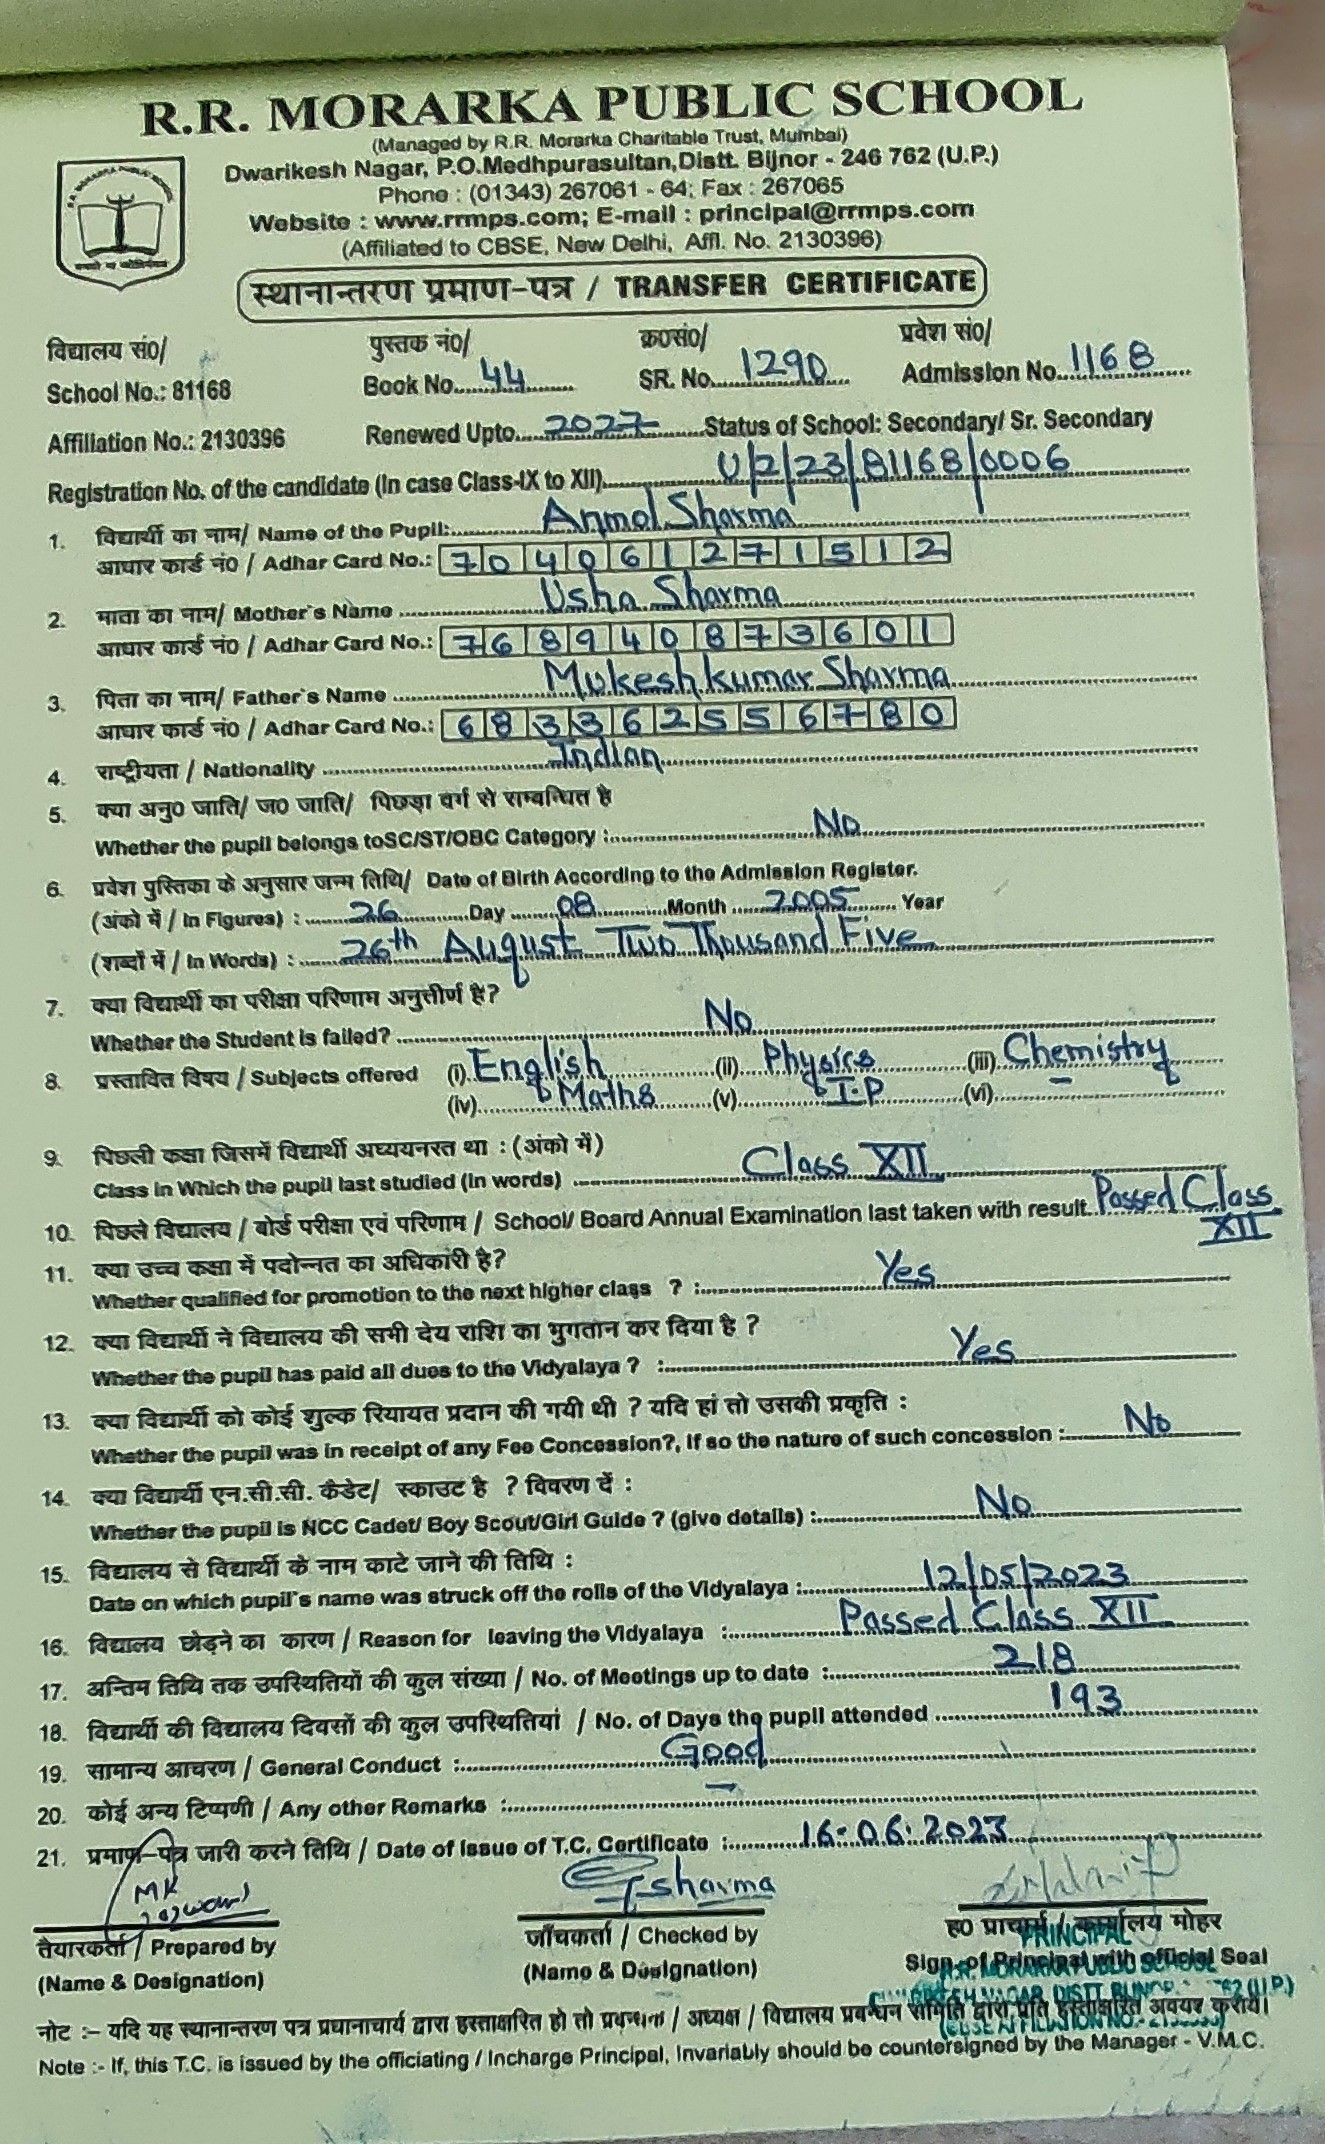 R.R. MORARKA PUBLIC SCHOOL
(Managed by R.R. Morarka Charitable Trust, Mumbai)
Dwarikesh Nagar, P.O.Medhpurasultan,Distt. Bijnor - 246 762 (U.P.)
Phone : (01343) 267061 - 64; Fax : 267065
Website : www.rrmps.com; E-mail : principal@rrmps.com
(Affiliated to CBSE, New Delhi, Affl. No. 2130396)
स्थानान्तरण प्रमाण-पत्र / TRANSFER CERTIFICATE
विद्यालय सं0/ पुस्तक नं0/ क्र0सं0/ प्रवेश सं0/
School No.: 81168 Book No. 44 SR. No. 1290 Admission No. 1168
Affiliation No.: 2130396 Renewed Upto 2027 Status of School: Secondary/ Sr. Secondary
Registration No. of the candidate (In case Class-IX to XII) U/2/23/81168/0006
1. विद्यार्थी का नाम/ Name of the Pupil: Anmol Sharma
आधार कार्ड नं0 / Adhar Card No.: 704061271512
2. माता का नाम/ Mother's Name Usha Sharma
आधार कार्ड नं0 / Adhar Card No.: 768940873601
3. पिता का नाम/ Father's Name Mukesh kumar Sharma
आधार कार्ड नं0 / Adhar Card No.: 683362556780
4. राष्ट्रीयता / Nationality Indian
5. क्या अनु0 जाति/ ज0 जाति/ पिछड़ा वर्ग से सम्बन्धित है
Whether the pupil belongs toSC/ST/OBC Category : No
6. प्रवेश पुस्तिका के अनुसार जन्म तिथि/ Date of Birth According to the Admission Register.
(अंको में / In Figures) : 26 Day 08 Month 2005 Year
(शब्दों में / In Words) : 26th August Two Thousand Five
7. क्या विद्यार्थी का परीक्षा परिणाम अनुत्तीर्ण है?
Whether the Student is failed? No
8. प्रस्तावित विषय / Subjects offered (i) English (ii) Physics (iii) Chemistry
(iv) Maths (v) I.P (vi) -
9. पिछली कक्षा जिसमें विद्यार्थी अध्ययनरत था : (अंको में)
Class in Which the pupil last studied (in words) Class XII
10. पिछले विद्यालय / बोर्ड परीक्षा एवं परिणाम / School/ Board Annual Examination last taken with result Passed Class
XII
11. क्या उच्च कक्षा में पदोन्नत का अधिकारी है?
Whether qualified for promotion to the next higher class ? : Yes
12. क्या विद्यार्थी ने विद्यालय की सभी देय राशि का भुगतान कर दिया है ?
Whether the pupil has paid all dues to the Vidyalaya ? : Yes
13. क्या विद्यार्थी को कोई शुल्क रियायत प्रदान की गयी थी ? यदि हां तो उसकी प्रकृति :
Whether the pupil was in receipt of any Fee Concession?, If so the nature of such concession : No
14. क्या विद्यार्थी एन.सी.सी. कैडेट/ स्काउट है ? विवरण दें :
Whether the pupil is NCC Cadet/ Boy Scout/Girl Guide ? (give details) : No
15. विद्यालय से विद्यार्थी के नाम काटे जाने की तिथि :
Date on which pupil's name was struck off the rolls of the Vidyalaya : 12/05/2023
16. विद्यालय छोड़ने का कारण / Reason for leaving the Vidyalaya : Passed Class XII
17. अन्तिम तिथि तक उपस्थितियों की कुल संख्या / No. of Meetings up to date : 218
18. विद्यार्थी की विद्यालय दिवसों की कुल उपस्थितियां / No. of Days the pupil attended 193
19. सामान्य आचरण / General Conduct : Good
20. कोई अन्य टिप्पणी / Any other Remarks : -
21. प्रमाण-पत्र जारी करने तिथि / Date of Issue of T.C. Certificate : 16.06.2023
MK Sharma
तैयारकर्ता / Prepared by जाँचकर्ता / Checked by ह0 प्राचार्य / कार्यालय मोहर
(Name & Designation) (Name & Designation) Sign. of Principal with official Seal
PRINCIPAL
R.R. MORARKA PUBLIC SCHOOL
नोट :- यदि यह स्थानान्तरण पत्र प्रधानाचार्य द्वारा हस्ताक्षरित हो तो प्रबन्धक / अध्यक्ष / विद्यालय प्रबन्धन समिति द्वारा प्रति हस्ताक्षरित अवश्य करायें।
Note :- If, this T.C. is issued by the officiating / Incharge Principal, Invariably should be countersigned by the Manager - V.M.C.